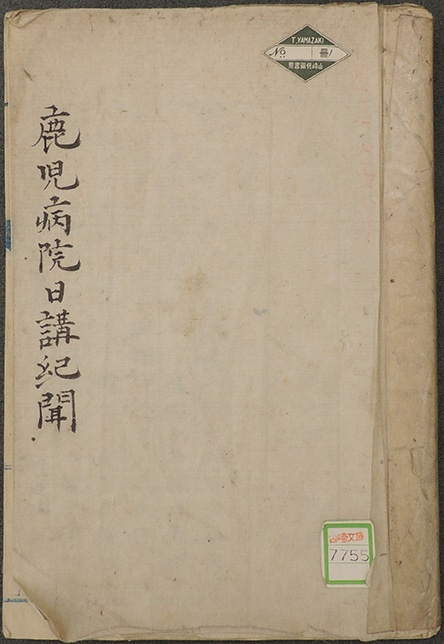 T. YAMAZAKI
No. 冊
鹿児病院日講紀聞
山崎文庫
7755